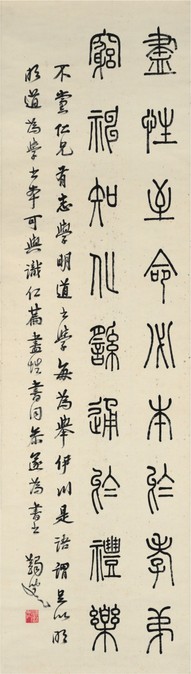 盡性至命必本於孝弟
窮神知化繇通於禮樂
不黨仁兄有志學明道之學每為舉伊川是語謂足以明
明道為學之本可與識仁篇書同參遂為書之